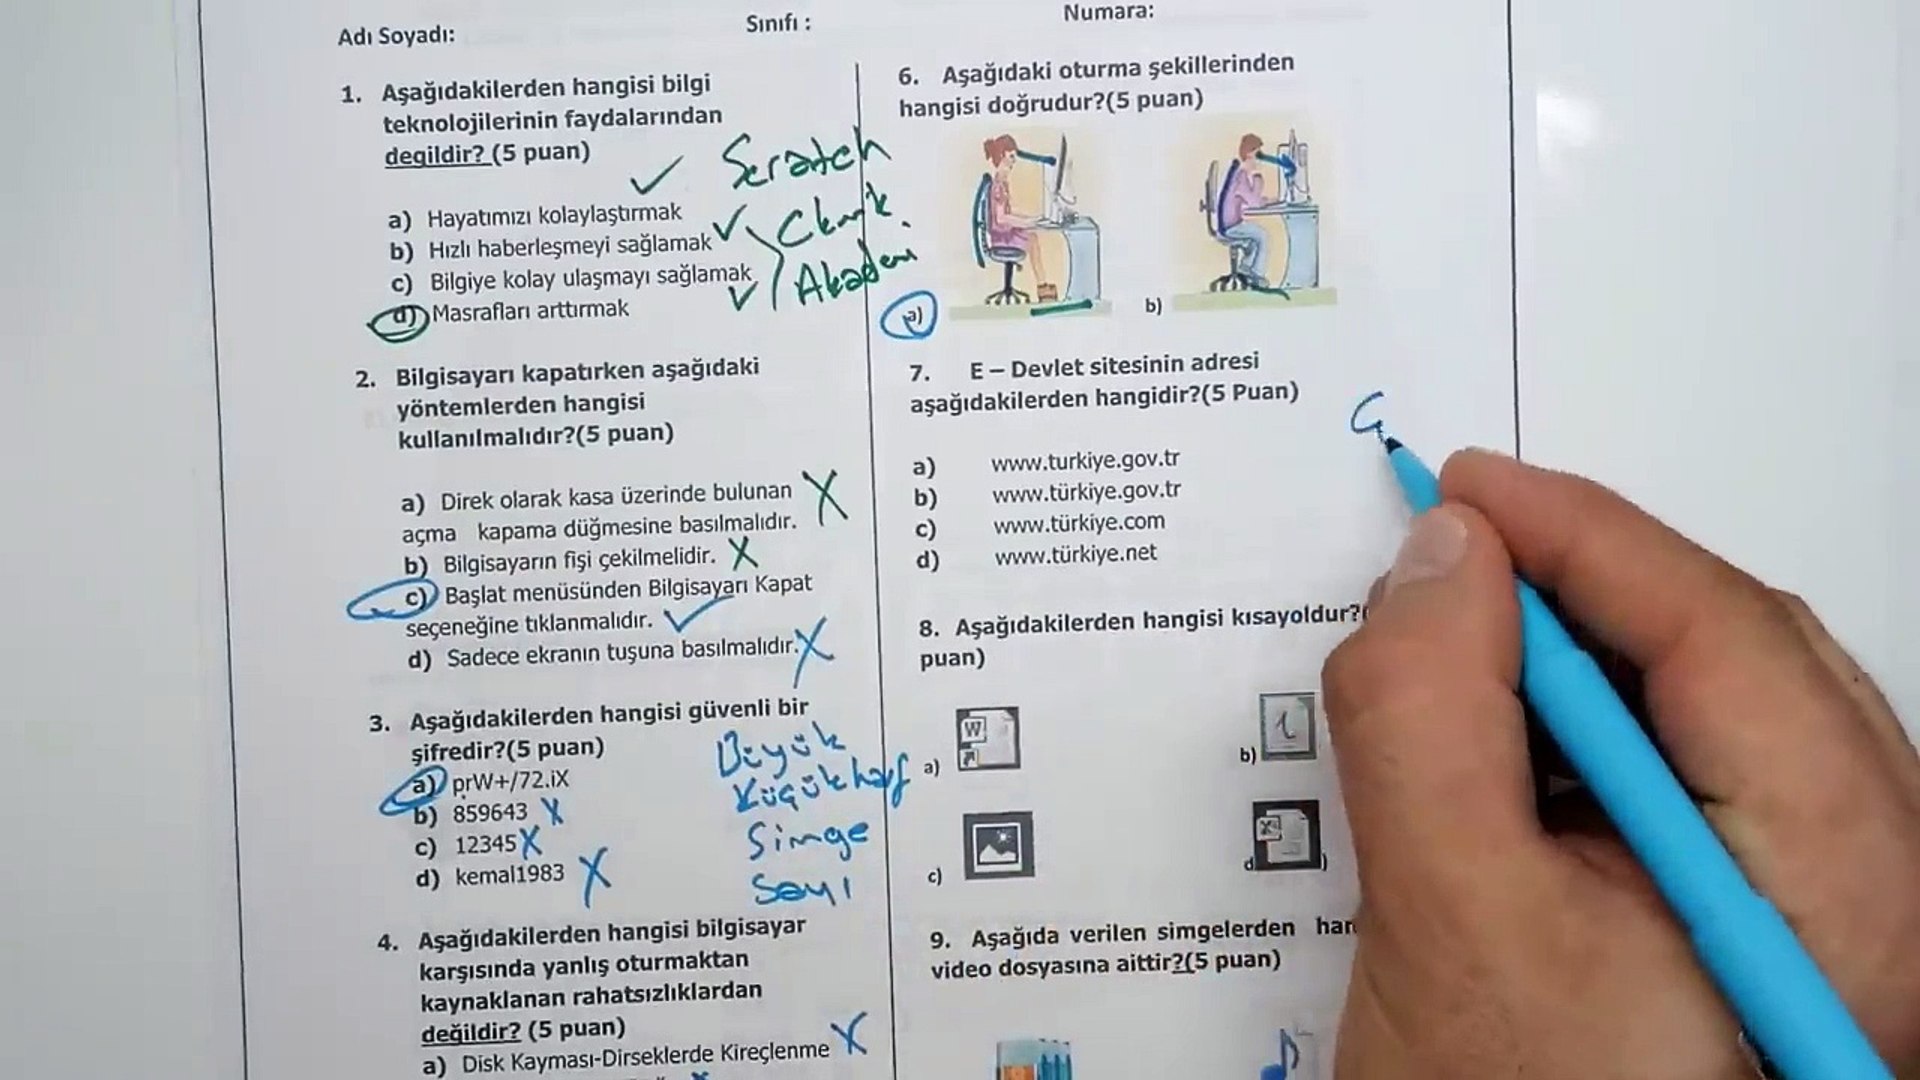 Adı Soyadı:
Sınıfı :
Numara:
1. Aşağıdakilerden hangisi bilgi
teknolojilerinin faydalarından
degildir? (5 puan)
a) Hayatımızı kolaylaştırmak
b) Hızlı haberleşmeyi sağlamak
c) Bilgiye kolay ulaşmayı sağlamak
d) Masrafları arttırmak
Scratch
Akademi
2. Bilgisayarı kapatırken aşağıdaki
yöntemlerden hangisi
kullanılmalıdır?(5 puan)
a) Direk olarak kasa üzerinde bulunan
açma kapama düğmesine basılmalıdır.
b) Bilgisayarın fişi çekilmelidir.
c) Başlat menüsünden Bilgisayarı Kapat
seçeneğine tıklanmalıdır.
d) Sadece ekranın tuşuna basılmalıdır.
3. Aşağıdakilerden hangisi güvenli bir
şifredir?(5 puan)
a) prW+/72.iX
b) 859643
c) 12345
d) kemal1983
Büyük
Küçük harf
Simge
Sayı
4. Aşağıdakilerden hangisi bilgisayar
karşısında yanlış oturmaktan
kaynaklanan rahatsızlıklardan
değildir? (5 puan)
a) Disk Kayması-Dirseklerde Kireçlenme
6. Aşağıdaki oturma şekillerinden
hangisi doğrudur?(5 puan)
a)
b)
7. E – Devlet sitesinin adresi
aşağıdakilerden hangidir?(5 Puan)
G
a) www.turkiye.gov.tr
b) www.türkiye.gov.tr
c) www.türkiye.com
d) www.türkiye.net
8. Aşağıdakilerden hangisi kısayoldur?(
puan)
a)
b)
c)
d)
9. Aşağıda verilen simgelerden
video dosyasına aittir?(5 puan)